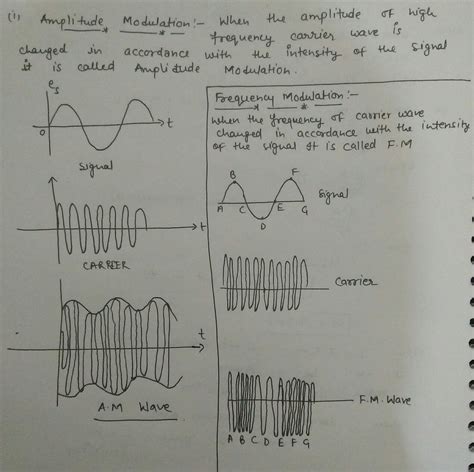 (1) Amplitude Modulation:- When the amplitude of high
frequency carrier wave is
changed in accordance with the intensity of the signal
it is called Amplitude Modulation.
es
O
t
Signal
t
CARRIER
t
A.M Wave
Frequency Modulation:-
When the frequency of carrier wave
changed in accordance with the intensity
of the signal It is called F.M
B
F
Signal
A
C
E
G
D
Carrier
F.M. Wave
A B C D E F G